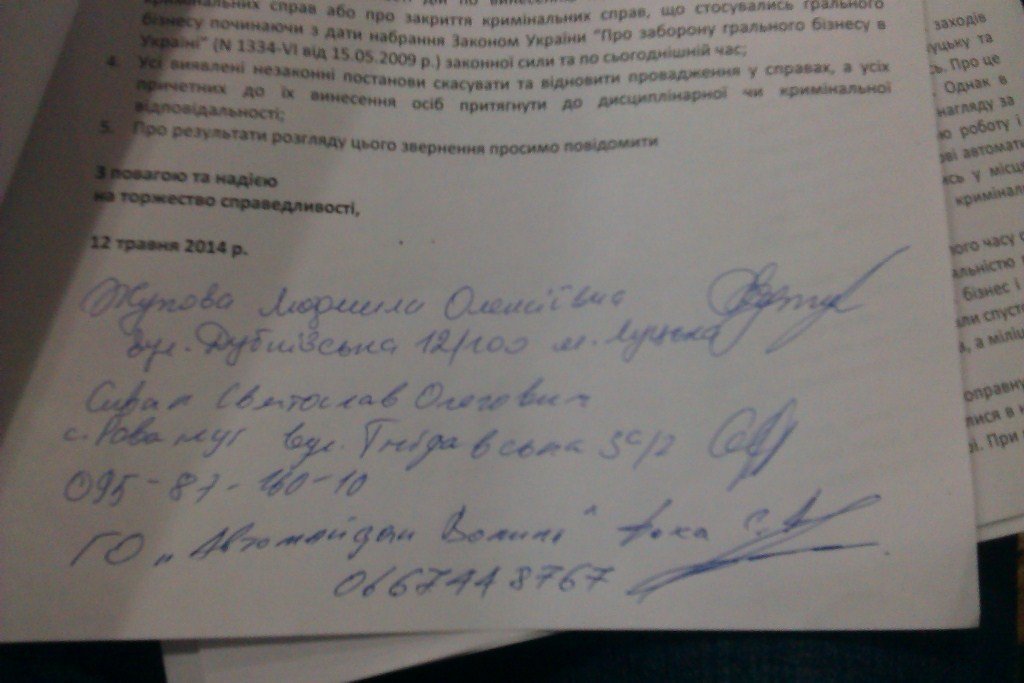 кримінальних справ або про закриття кримінальних справ, що стосувались грального
бізнесу починаючи з дати набрання Законом України "Про заборону грального бізнесу в
Україні" (N 1334-VI від 15.05.2009 р.) законної сили та по сьогоднішній час;
4. Усі виявлені незаконні постанови скасувати та відновити провадження у справах, а усіх
причетних до їх винесення осіб притягнути до дисциплінарної чи кримінальної
відповідальності;
5. Про результати розгляду цього звернення просимо повідомити
З повагою та надією
на торжество справедливості,
12 травня 2014 р.
Жупова Людмила Олексіївна
вул. Дубнівська 12/100 м. Луцька
Святослав Олегович
с. Рованці вул. Гнідавська
095-87-160-10
ГО „Автомайдан Волині"
0667448767
заходів
луцьку та
Про це
Однак в
нагляду за
роботу і
автомати
у місц
криміналь
часу
бізнес і
спуст
а міліц
При